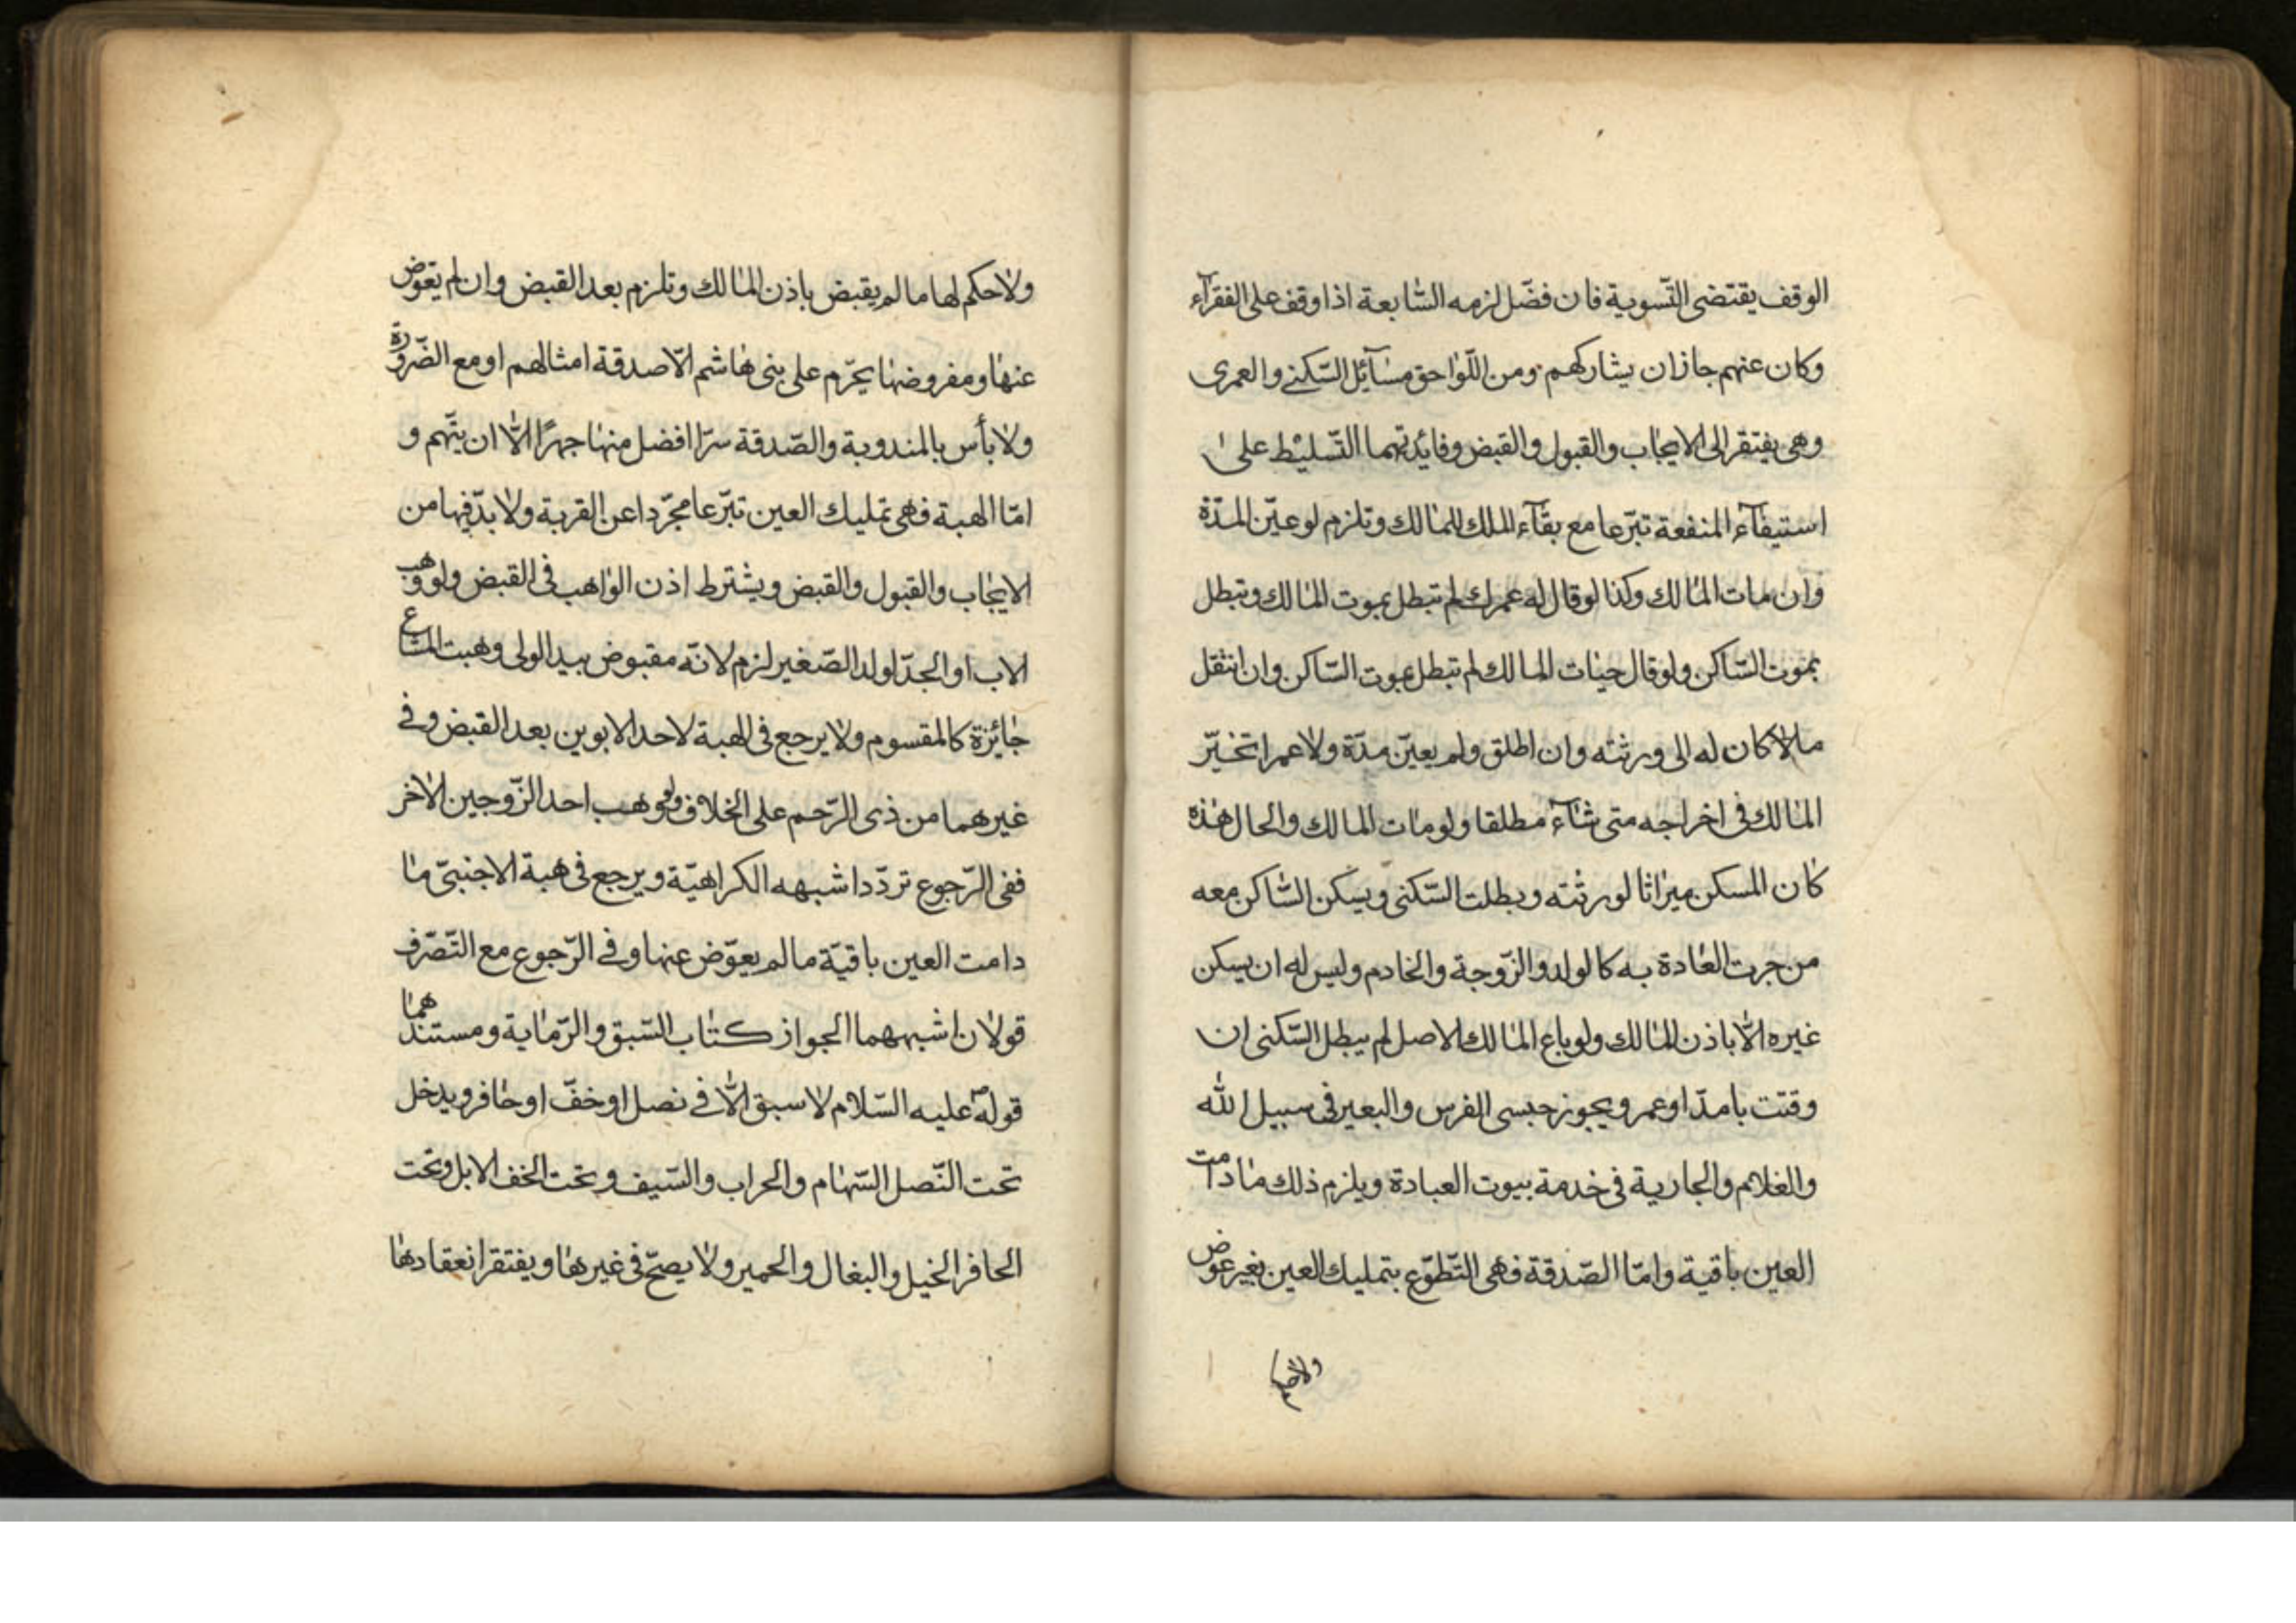 الوقف يقتضى التّسوية فان فضّل لزمه السّابعة اذا وقف على الفقرآء
وكان عنهم جازان يشاركهم ومن اللّواحق مسآئل السّكنے والعمرى
وهى يفتقر الى الايجاب والقبول والقبض وفايدتهما التّسليط على
استيفآء المنفعة تبرّعا مع بقآء الملك للمالك وتلزم لو عيّن المدّة
وان مات المالك وكذا لو قال له عمرك لم تبطل بموت المالك وتبطل
بموت السّاكن ولو قال حيات المالك لم تبطل بموت السّاكن وان انتقل
ما كان له الى ورثته وان اطلق ولم يعيّن مدّة ولا عمرا تخيّر
المالك فى اخراجه متى شآء مطلقا ولو مات المالك والحال هذه
كان المسكن ميراثا لورثته وبطلت السّكنى ويسكن السّاكن معه
من جرت العادة به كالولد والزّوجة والخادم وليس له ان يسكن
غيره الّا باذن المالك ولو باع المالك الاصل لم يبطل السّكنى ان
وقتت بامد او عمر ويجوز حبس الفرس والبعير فى سبيل الله
والغلام والجارية فى خدمة بيوت العبادة ويلزم ذلك مادامت
العين باقية وامّا الصّدقة فهى التّطوّع بتمليك العين بغير عوض
ولا حكم
ولا حكم لها ما لم يقبض باذن المالك وتلزم بعد القبض وان لم يعوّض
عنها ومفروضها يحرّم على بنى هاشم الّا صدقة امثالهم او مع الضّرورة
ولا بأس بالمندوبة والصّدقة سرّا افضل منها جهرًا الّا ان يتّهم و
امّا الهبة فهى تمليك العين تبرّعا مجرّدا عن القربة ولا بدّ فيها من
الايجاب والقبول والقبض ويشترط اذن الواهب فى القبض ولو وهب
الاب او الجدّ لولد الصّغير لزم لانّه مقبوض بيد الولى وهبت المشاع
جائزة كالمقسوم ولا يرجع فى الهبة لاحد الابوين بعد القبض وفے
غيرهما من ذى الرّحم على الخلاف ولو وهب احد الزّوجين الاخر
ففى الرّجوع تردّد اشبهه الكراهيّة ويرجع فى هبة الاجنبىّ ما
دامت العين باقيّة ما لم يعوّض عنها وفے الرّجوع مع التّصرّف
قولان اشبههما الجواز كتاب السّبق والرّماية ومستندهما
قوله عليه السّلام لا سبق الّا فے نصل او خفّ او حافر ويدخل
تحت النّصل السّهام والحراب والسّيف وتحت الخف الابل وتحت
الحافر الخيل والبغال والحمير ولا يصحّ فى غيرها ويفتقر انعقادها